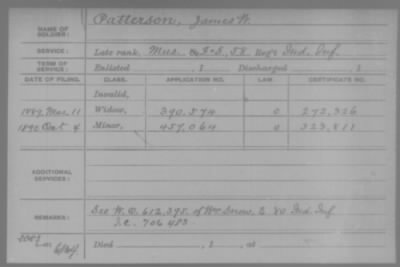 NAME OF SOLDIER: Patterson, James W.
SERVICE: Late rank, Mus. Co. F & S, 58 Reg't Ind. Inf.
TERM OF SERVICE: Enlisted , 1 Discharged , 1
DATE OF FILING. CLASS. APPLICATION NO. LAW. CERTIFICATE NO.
Invalid,
1889 Mar. 11 Widow, 390,574 0 272,326
1890 Oct 4 Minor, 457,064 0 323,811
ADDITIONAL SERVICES:
REMARKS: See W.O. 612,395 of Wm Snow, E 80 Ind. Inf
I.C. 706 483
Died , 1 , at